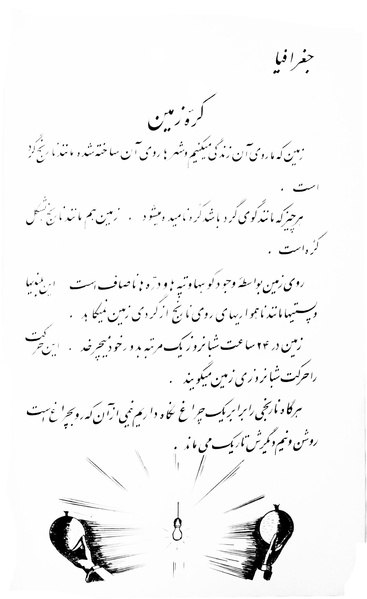 جغرافیا
کرهٔ زمین
زمین که ما روی آن زندگی میکنیم و شهرها روی آن ساخته شده مانند نارنج گرد
است .
هر چیز که مانند گوی گرد باشد کره نامیده میشود . زمین هم مانند نارنج بشکل
کره است .
روی زمین بواسطهٔ وجود کوهها و تپه ها و دره ها ناصاف است این بلندیها
و پستیها مانند ناهمواریهای روی نارنج از گردی زمین نمیکاهد .
زمین در ۲۴ ساعت شبانروز یک مرتبه بدور خود میچرخد . این حرکت
را حرکت شبانروزی زمین میگویند .
هرگاه نارنجی را برابر یک چراغ نگاه داریم نیمی از آن که رو بچراغ است
روشن و نیم دیگرش تاریک می ماند .